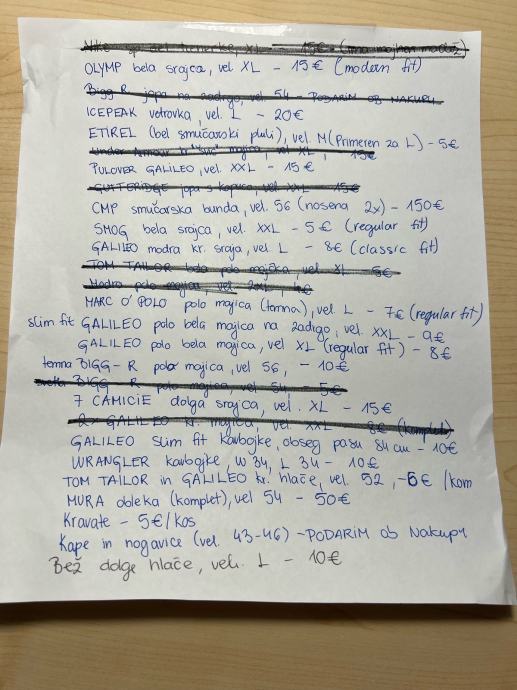 XL - 15€ (
OLYMP bela srajca, vel XL - 15€ (modern fit)
Bigg R jopa na zadrgo, vel 54 - PODARIM OB NAKUPU
ICEPEAK vetrovka, vel. L - 20€
ETIREL (bel smučarski puli), vel M (Primeren za L) - 5€
majica, vel XL, 15€
PULOVER GALILEO, vel. XXL - 15€
GUTTERIDGE jopa s kapuco, vel XXL 15€
CMP smučarska bunda, vel. 56 (nosena 2x) - 150€
SMOG bela srajca, vel. XXL - 5€ (regular fit)
GALILEO modra kr. sraja, vel. L - 8€ (classic fit)
TOM TAILOR bela polo majička, vel XL - 6€
Modra polo majica, vel 2XL,
MARC O'POLO polo majica (temno), vel. L - 7€ (regular fit)
slim fit GALILEO polo bela majica na zadrgo, vel. XXL - 9€
GALILEO polo bela majica, vel XL (regular fit) - 8€
temna BIGG-R polo majica, vel 56, - 10€
svetla BIGG R polo majica, vel 54 - 5€
7 CAMICIE dolga srajca, vel. XL - 15€
2x GALILEO kr. majica, vel XXL 8€ (komplet)
GALILEO slim fit kavbojke, obseg pasu 84 cm - 10€
WRANGLER kavbojke, W 34, L 34 - 10€
TOM TAILOR in GALILEO kr. hlače, vel. 52, - 6€ /kom
MURA obleka (komplet), vel 54 - 50€
Kravate - 5€/kos
Kape in nogavice (vel. 43-46) - PODARIM ob Nakupu
Bež dolge hlače, vel. L - 10€